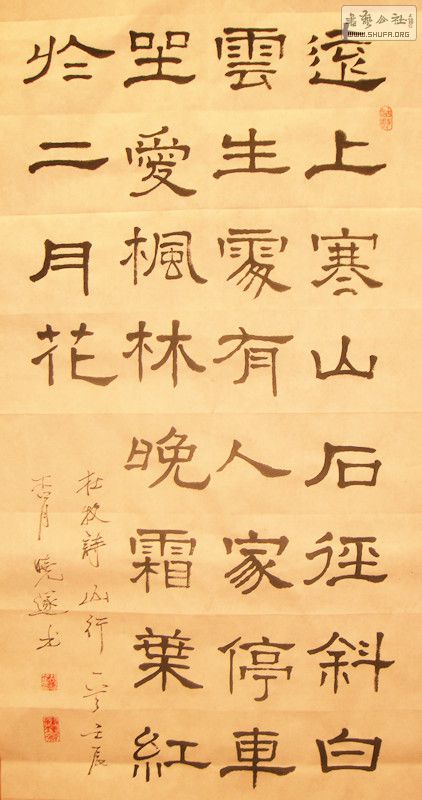 遠上寒山石徑斜白
雲生處有人家停車
坐愛楓林晚霜葉紅
於二月花
杜牧詩 山行 一首 壬辰
杏月 曉遂书
書藝公社
WWW.SHUFA.ORG